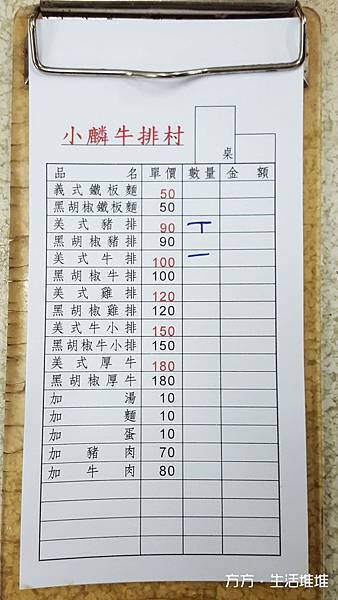 小麟牛排村
桌
品名 單價 數量 金額
義式鐵板麵 50
黑胡椒鐵板麵 50
美式豬排 90 丅
黑胡椒豬排 90
美式牛排 100 一
黑胡椒牛排 100
美式雞排 120
黑胡椒雞排 120
美式牛小排 150
黑胡椒牛小排 150
美式厚牛 180
黑胡椒厚牛 180
加湯 10
加麵 10
加蛋 10
加豬肉 70
加牛肉 80
方方・生活堆堆